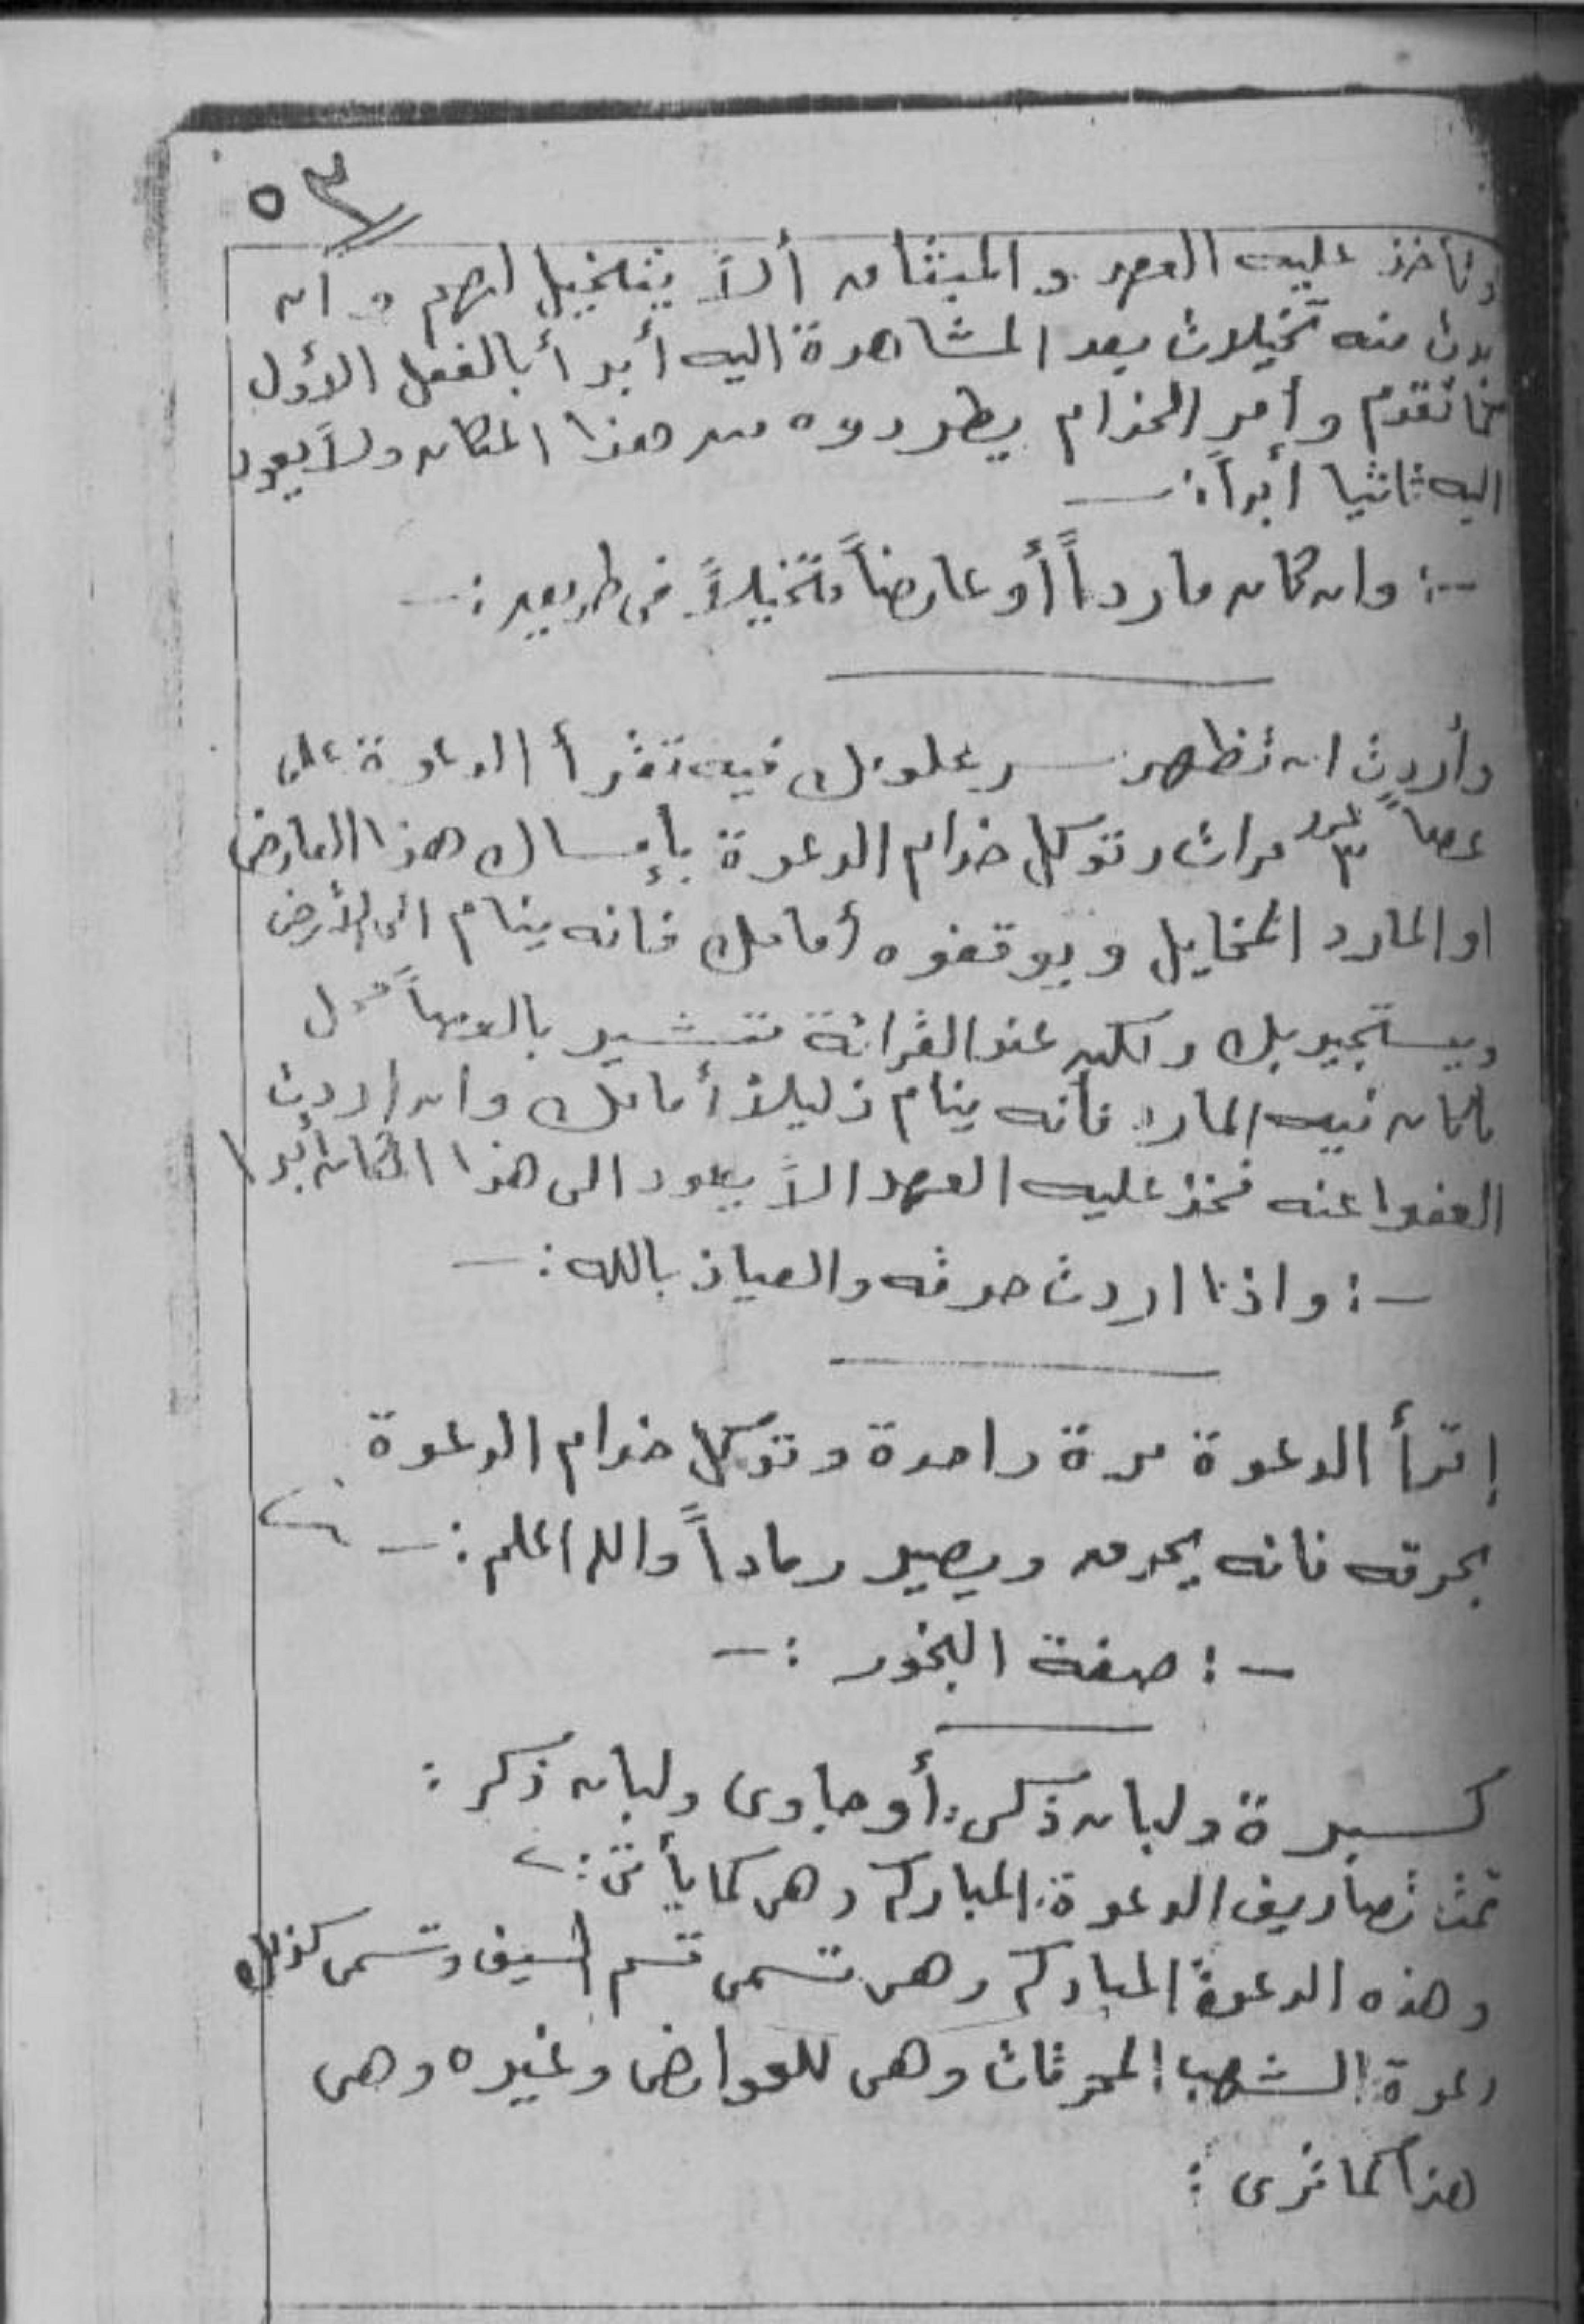 ٥٣
وتأخذ عليه العهد والميثاق ألاَّ يتخيل لهم وان
بدت منه تخيلات بعد المشاهدة اليه أبدأ بالفعل الأول
كما تقدم وأمر الخدام يطردوه من هذا المكان ولا يعود
اليه ثانيا أبداً :ـ
ـ: وان كان مارداً أو عارضاً متخيلاً فى طريق :ـ
وأردت ان تظهر سر علومك فيه تقرأ الدعوة على
عصاً عدد ٣ مرات وتوكل خدام الدعوة بإمساك هذا العارض
او المارد المخايل ويوقفوه أمامك فانه ينام الى الأرض
ويستجير بك ولكن عند القرائة تشير بالعصاً
المكان فيه المارد فانه ينام ذليلاً أمامك وان اردت
العفوا عنه فخذ عليه العهد الاَّ يعود الى هذا المكان أبدا
ـ: واذا اردت حرقه والعياذ بالله :ـ
إقرأ الدعوة مرة واحدة وتوكل خدام الدعوة
بحرقه فانه يحرق ويصير رماداً والله اعلم :ـ
ـ: صفة البخور :ـ
كسبرة ولبان ذكر أو جاوى ولبان ذكر :
تمت تصاريف الدعوة المباركه وهى كما يأتى :
وهذه الدعوة المباركه وهى تسمى قسم السيف وتسمى كذلك
دعوة الشهب المحرقات وهى للعوارض وغيره وهى
هذا كما ترى :